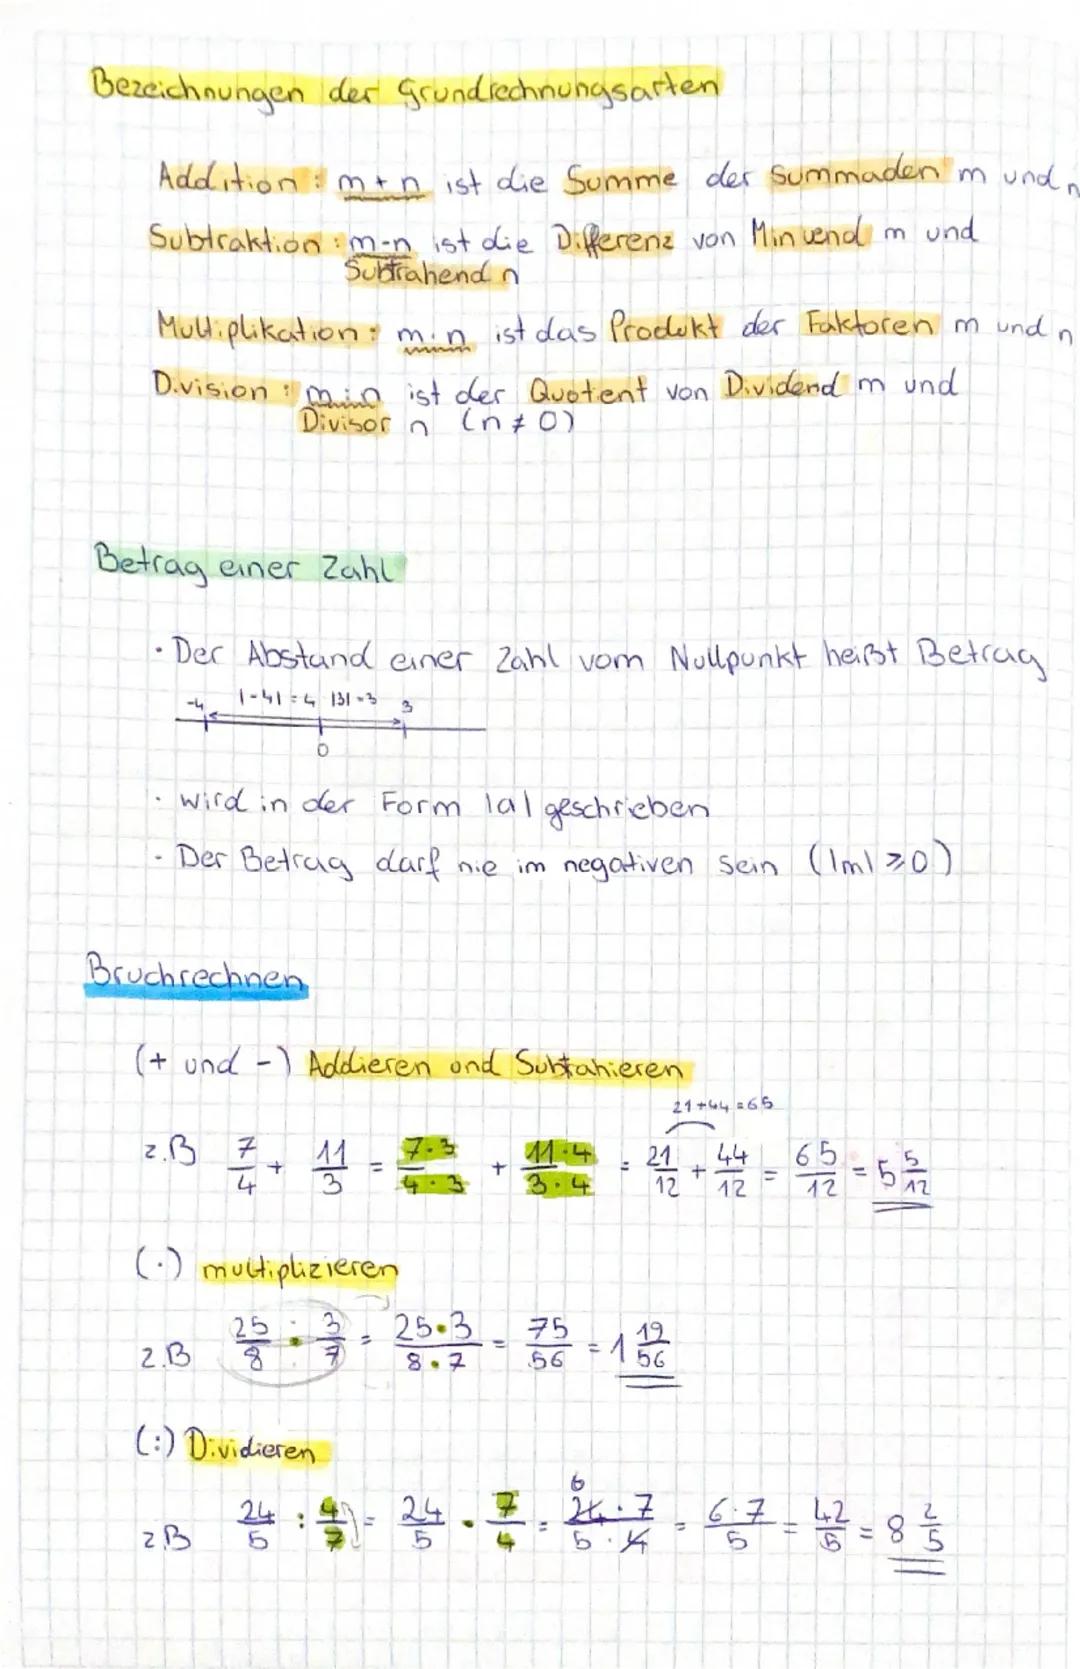 Bezeichnungen der Grundrechnungsarten
Addition : m + n ist die Summe der Summaden m und n
Subtraktion : m - n ist die Differenz von Minuend m und
Subtrahend n
Multiplikation : m · n ist das Produkt der Faktoren m und n
Division : m : n ist der Quotient von Dividend m und
Divisor n (n ≠ 0)
Betrag einer Zahl
· Der Abstand einer Zahl vom Nullpunkt heißt Betrag
-4 |-4| = 4 |3| = 3 3
0
· wird in der Form |a| geschrieben
· Der Betrag darf nie im negativen sein (|m| ≥ 0)
Bruchrechnen
(+ und -) Addieren und Subtahieren
21+44=65
z.B 7/4 + 11/3 = 7·3/4·3 + 11·4/3·4 = 21/12 + 44/12 = 65/12 = 5 5/12
(·) multiplizieren
z.B 25/8 · 3/7 = 25·3/8·7 = 75/56 = 1 19/56
(:) Dividieren
6
z.B 24/5 : 4/7 = 24/5 · 7/4 = 24·7/5·4 = 6·7/5 = 42/5 = 8 2/5